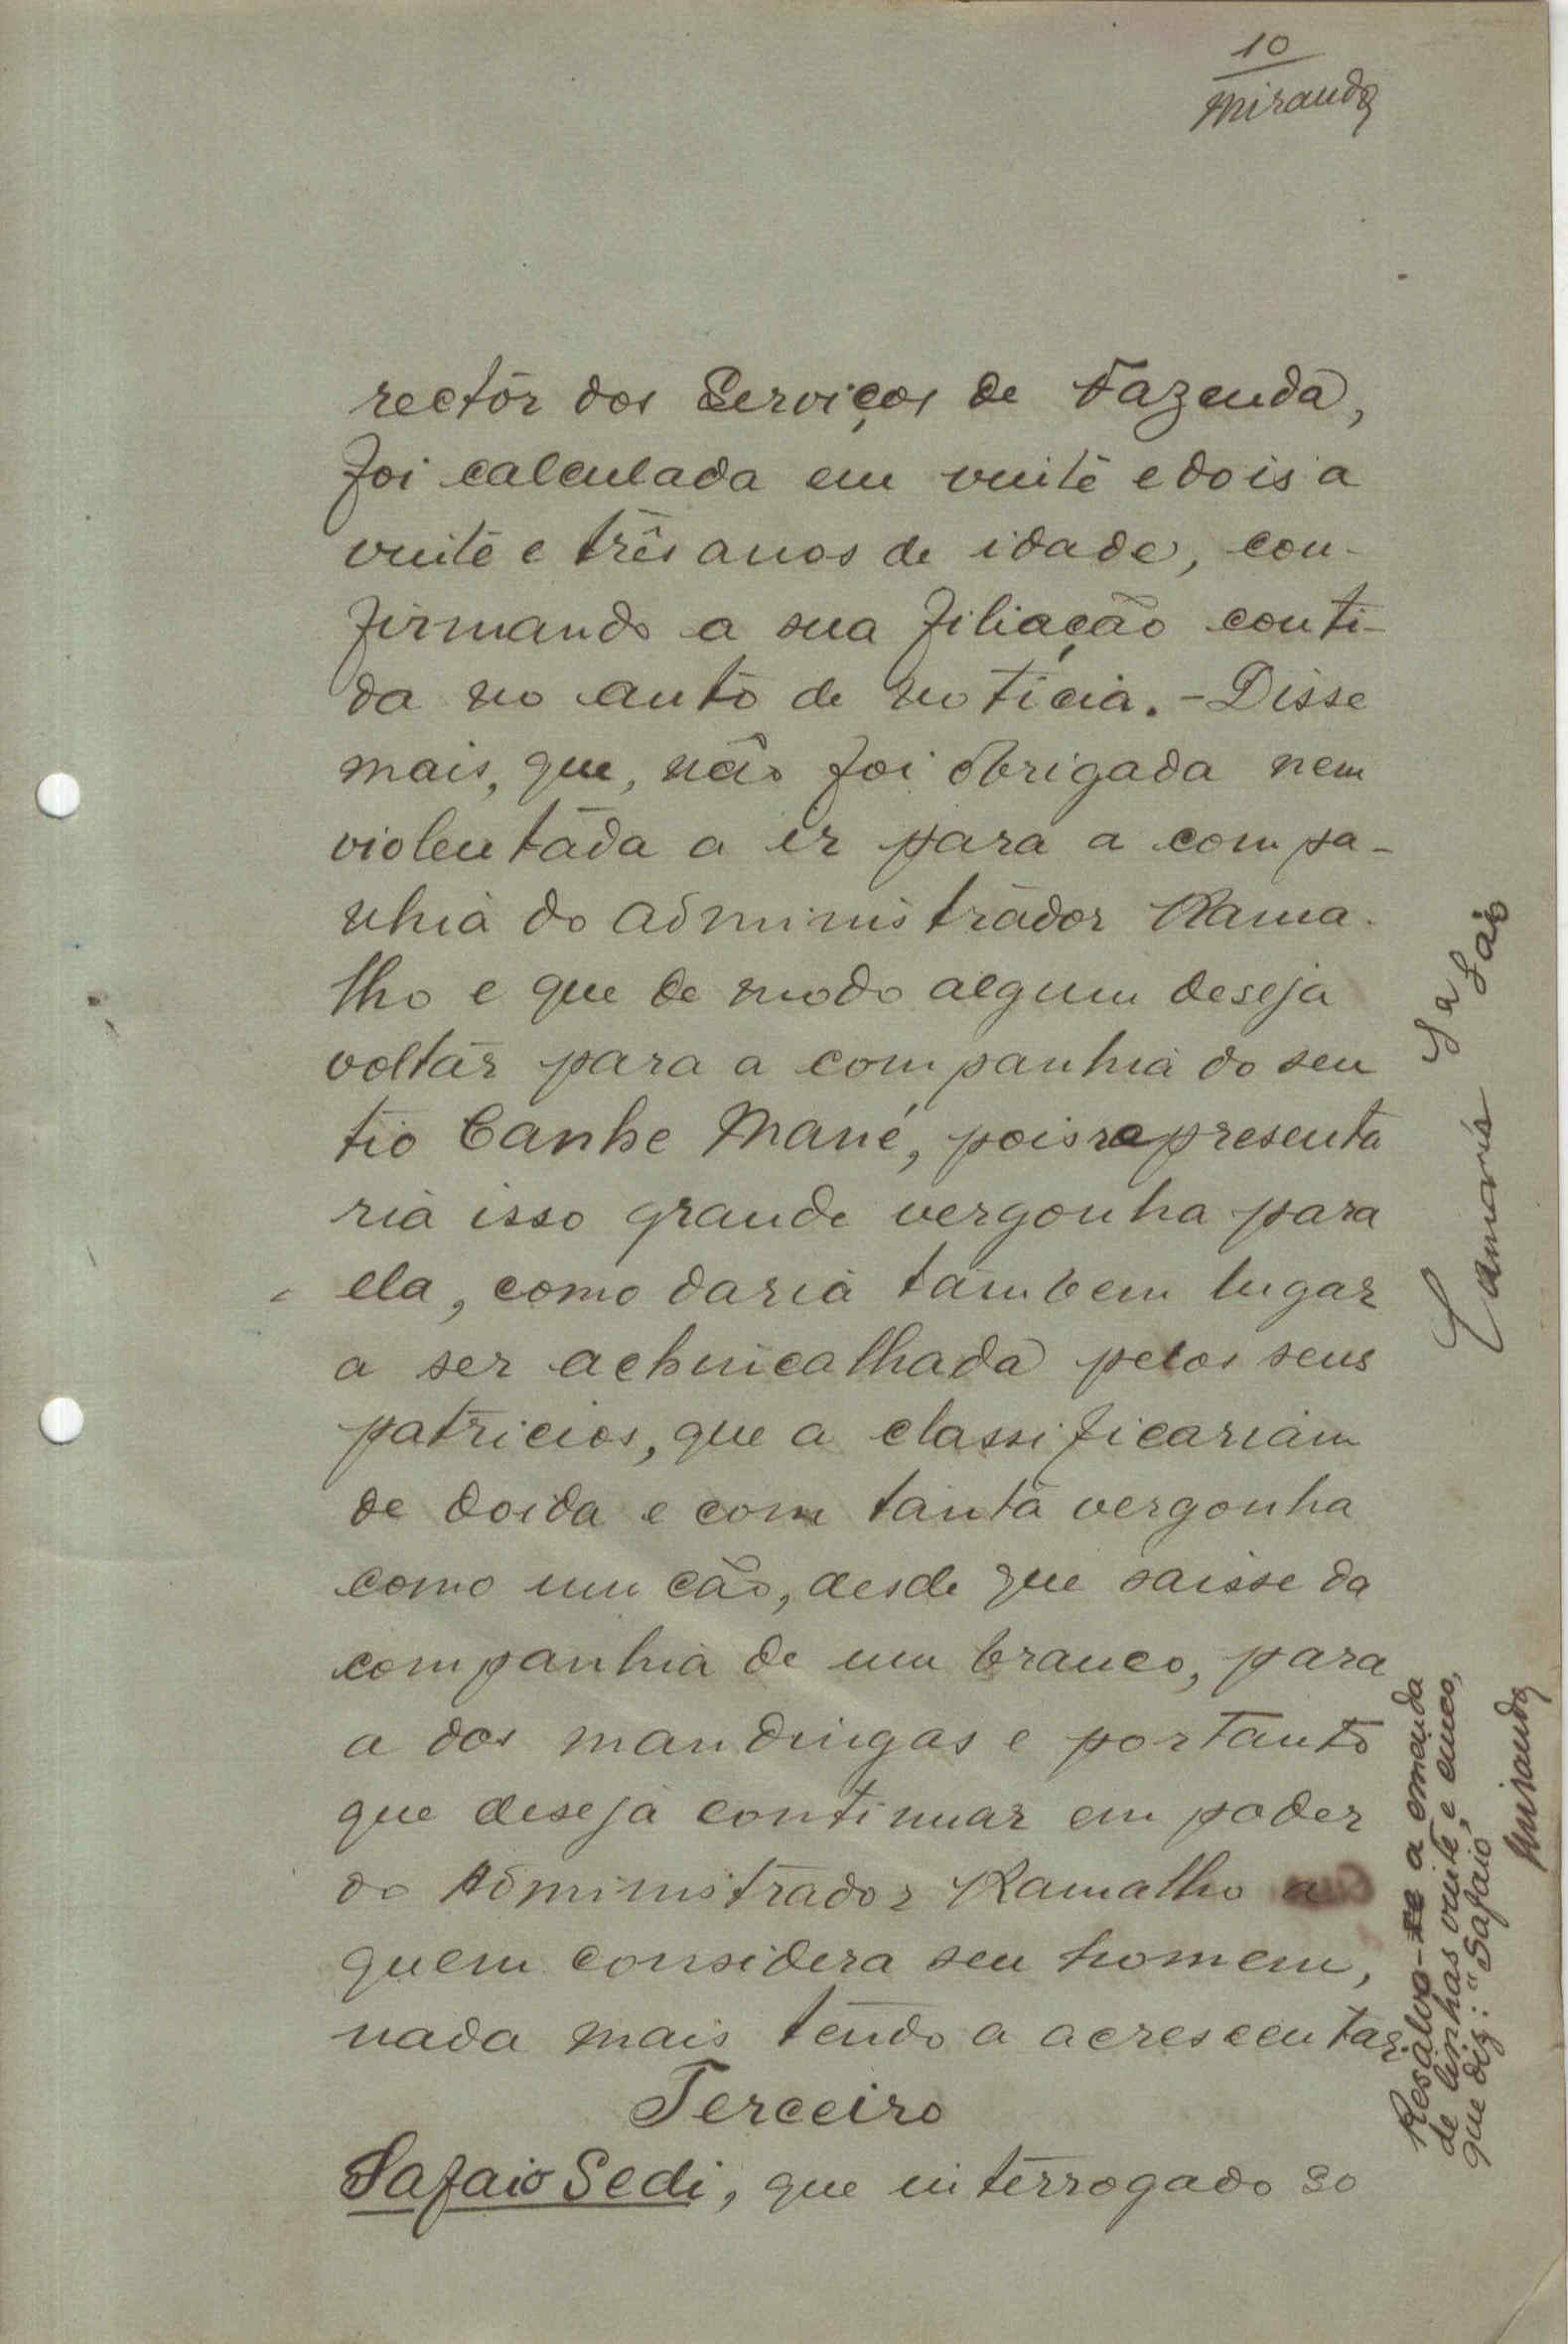 10
Miranda
rector dos Serviços de Fazenda,
foi calculada em vinte e dois a
vinte e três anos de idade, con-
firmando a sua filiação conti-
da no auto de noticia. - Disse
mais, que, não foi obrigada nem
violentada a ir para a compa-
nhia do administrador Rama-
lho e que de modo algum deseja
voltar para a companhia do seu
tio Canhe Mané, pois representa
ria isso grande vergonha para
ela, como daria tambem lugar
a ser achincalhada pelos seus
patricios, que a classificariam
de doida e com tanta vergonha
como um cão, desde que saisse da
companhia de um branco, para
a dos mandingas e portanto
que deseja continuar em poder
do Administrador Ramalho a
quem considera seu homem,
nada mais tendo a acrescentar.
Terceiro
Safaio Sedi, que interrogado so
Resalvo-se a emenda
de linhas vinte e cinco,
que diz: "Safaio"
Miranda